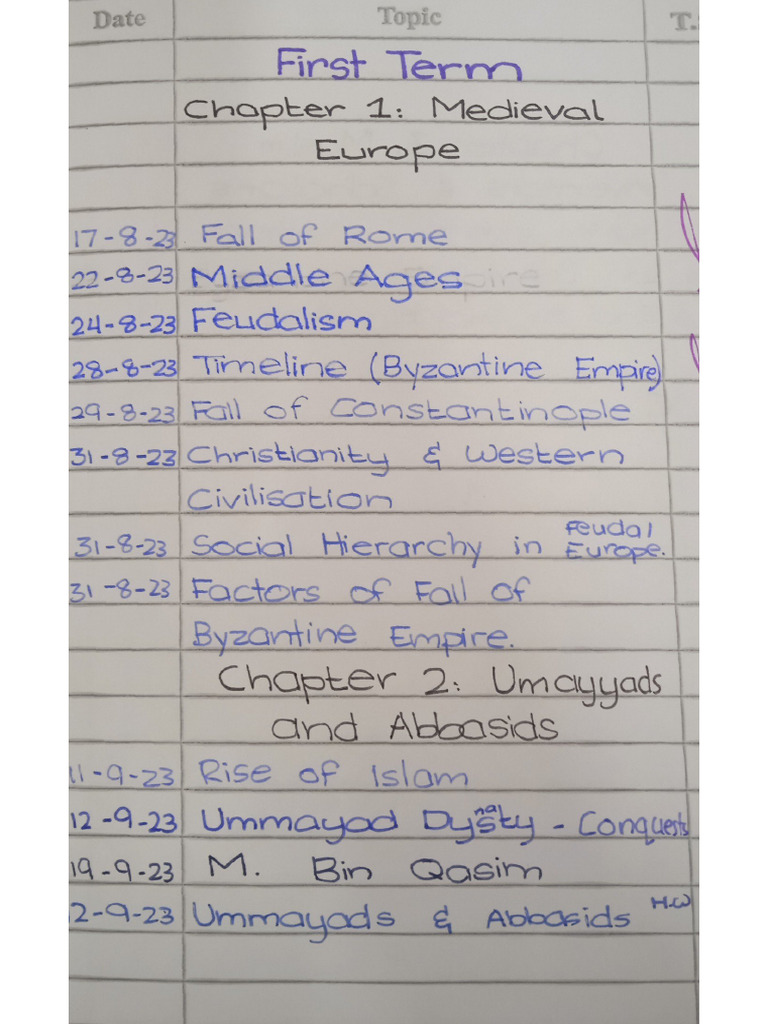 Date Topic T.
First Term
Chapter 1: Medieval
Europe
17-8-23 Fall of Rome
22-8-23 Middle Ages
24-8-23 Feudalism
28-8-23 Timeline (Byzantine Empire)
29-8-23 Fall of Constantinople
31-8-23 Christianity & Western
Civilisation
31-8-23 Social Hierarchy in Feudal Europe.
31-8-23 Factors of Fall of
Byzantine Empire.
Chapter 2: Umayyads
and Abbasids
11-9-23 Rise of Islam
12-9-23 Ummayad Dynasty - Conquests
19-9-23 M. Bin Qasim
2-9-23 Ummayads & Abbasids H.W